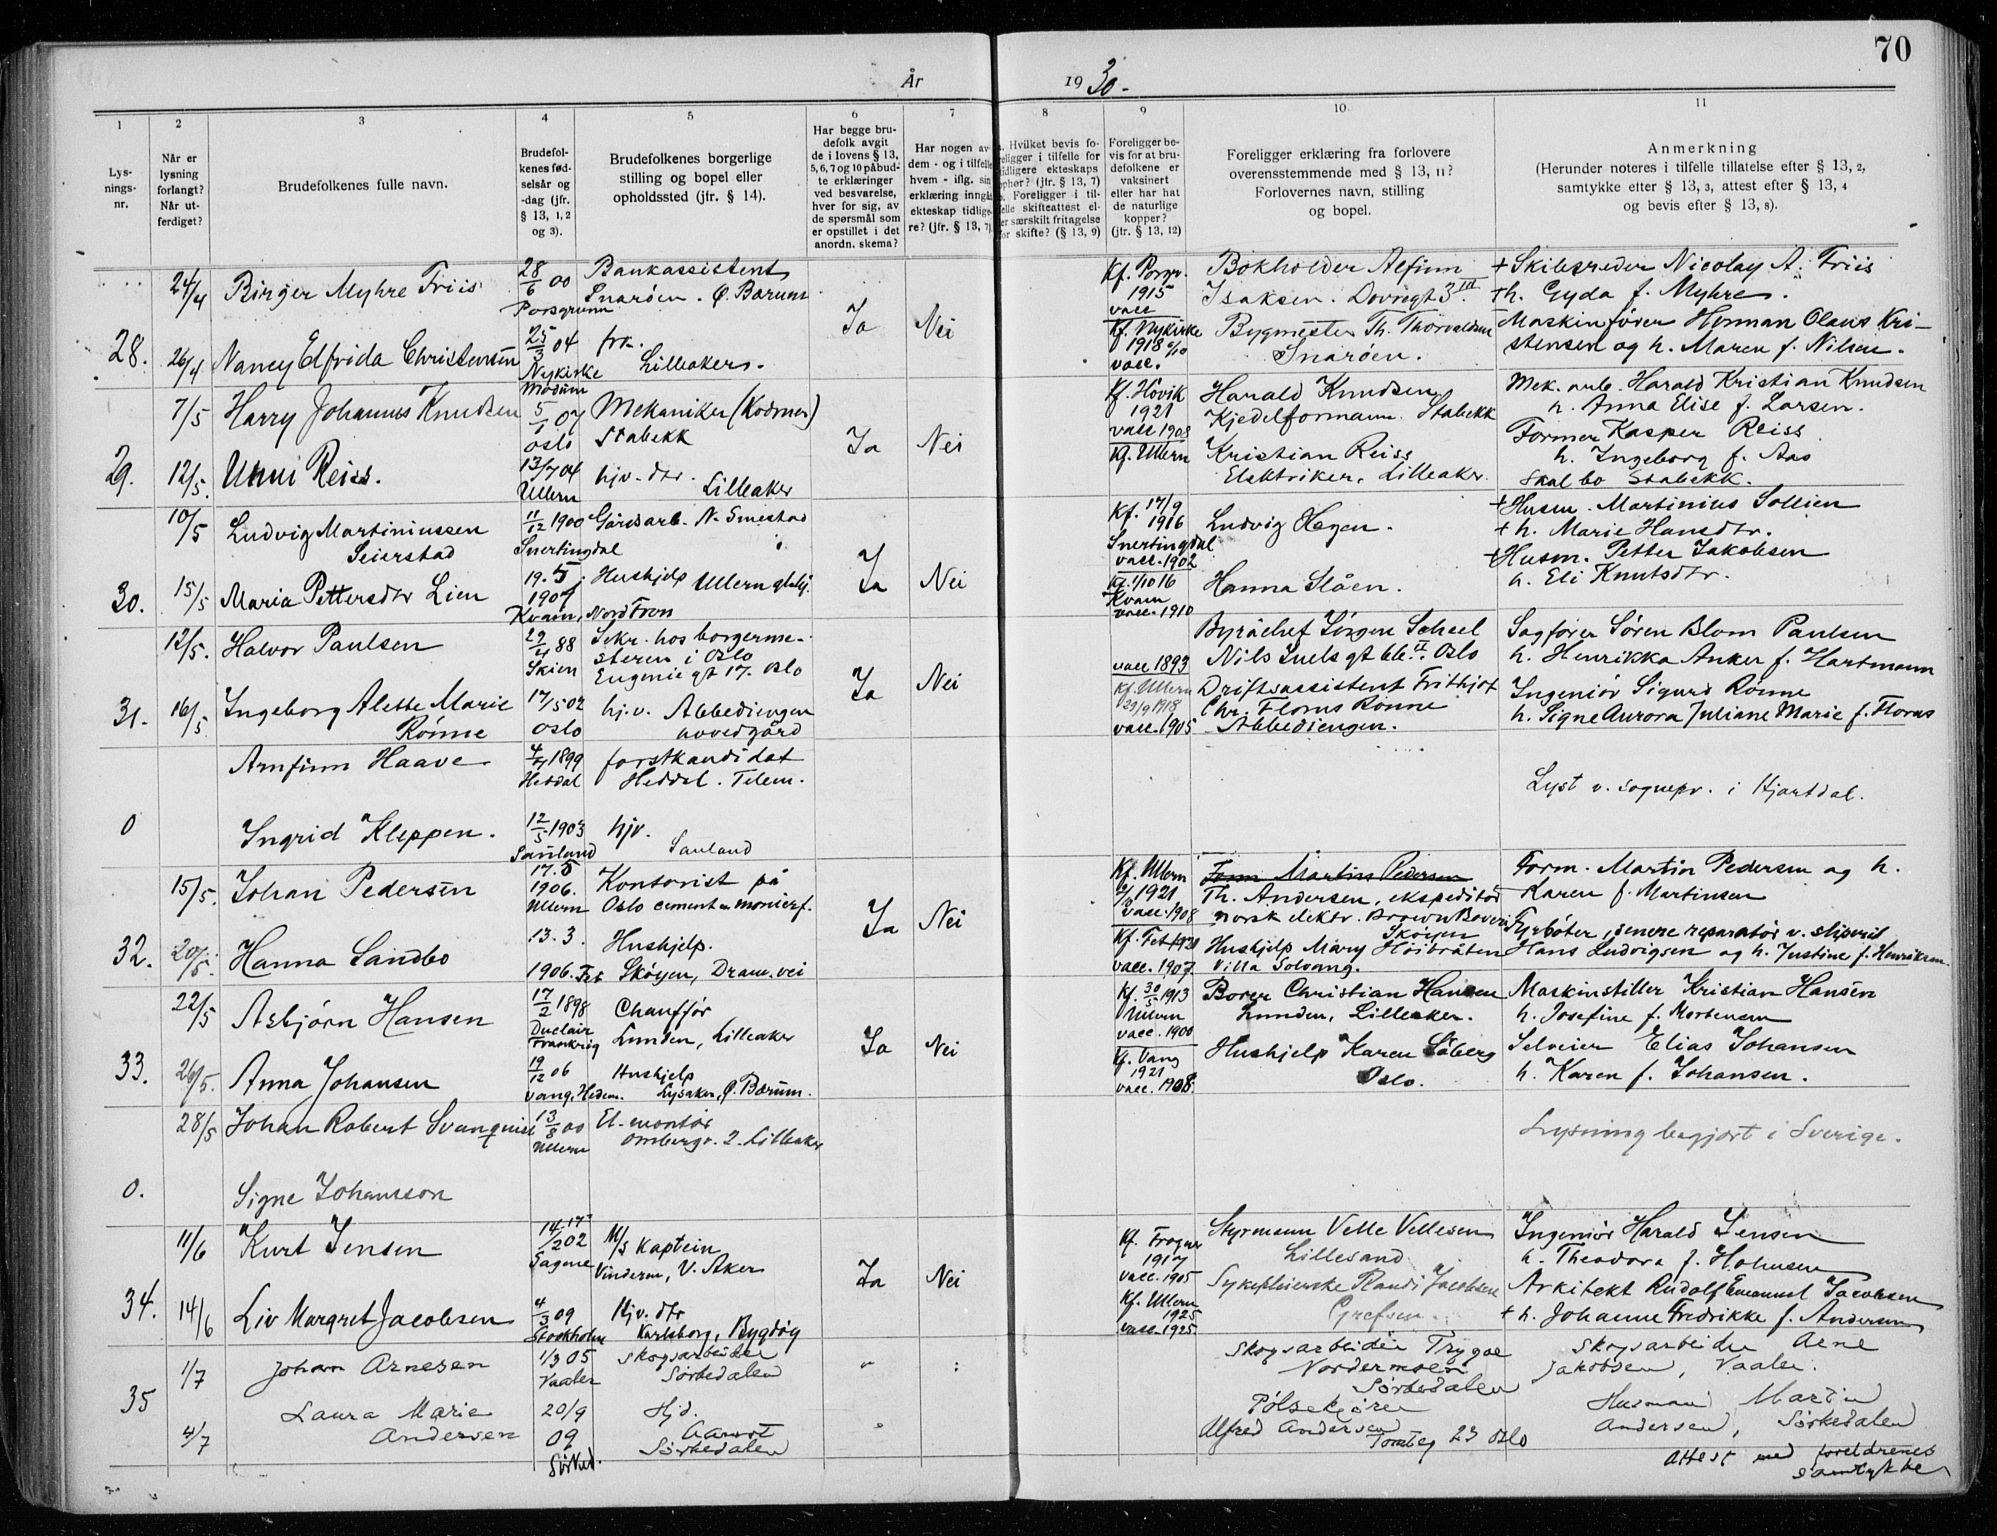 70
År 1930.
1 2 3 4 5 6 7 8 9 10 11
Lys-
nings-
nr.
Når er
lysning
forlangt?
Når ut-
ferdiget?
Brudefolkenes fulle navn.
Brudefol-
kenes fød-
selsår og
-dag (jfr.
§ 13, 1, 2
og 3).
Brudefolkenes borgerlige
stilling og bopel eller
opholdssted (jfr. § 14).
Har begge bru-
defolk avgit
de i lovens § 13,
5, 6, 7 og 10 påbud-
te erklæringer
ved besvarelse,
hver for sig, av
de spørsmål som
er opstillet i det
anordn. skema?
Har nogen av
dem - og i tilfelle
hvem - iflg. sin
erklæring inngåt
ekteskap tidlige-
re? (jfr. § 13, 7).
Hvilket bevis fo-
religger i tilfelle for
tidligere ekteskaps
ophør? (jfr. § 13, 7)
b. Foreligger i til-
felle skifteattest el-
ler særskilt fritagelse
for skifte? (§ 13, 9)
Foreligger be-
vis for at bru-
defolkene er
vaksinert
eller har hat
de naturlige
kopper?
(jfr. § 13, 12)
Foreligger erklæring fra forlovere
overensstemmende med § 13, 11?
Forlovernes navn, stilling
og bopel.
Anmerkning
(Herunder noteres i tilfelle tillatelse efter § 13, 2,
samtykke etter § 13, 3, attest efter § 13, 4
og bevis efter § 13, 8).
28.
24/4 Birger Myhre Friis
28/6 00
Porsgrunn
Bankassistent
Snarøen. Ø. Bærum
Ja Nei
Kf. Porsgr.
1915
vacc
Bokholder Alfinn
Isaksen. Dovregt 3 III.
+ Skibsreder Nicolay A. Friis
+ h. Gyda f. Myhre.
26/4 Nancy Elfrida Christensen
25/3 04
Nykirke
Modum
frk.
Lilleaker.
Kf. Nykirke
1918 6/10
vacc.
Bygmester Th. Thorvaldsen
Snarøen.
Maskinfører Herman Olaus Kri-
stensen og h. Maren f. Nilsen.
29.
7/5 Harry Johannes Knudsen
5/1 07
Oslo
Mekaniker (Kodmer)
Stabekk
Ja Nei
Kf. Høvik
1921
vacc 1908
Harald Knudsen
Kjedelformann. Stabekk
Mek. arb. Harald Kristian Knudsen
h. Anna Elise f. Larsen.
12/5. Unni Reiss.
13/7 04
Ullern
hjv. dtr.
Lilleaker
Kf. Ullern
Kristian Reiss
Elektriker, Lilleaker.
Former Kasper Reiss
h. Ingeborg f. Aas
Skal bo Stabekk.
30.
10/5 Ludvig Martiniussen
Seierstad
11/12 1900
Snertingdal
Gårdsarb. N. Smestad
Ja Nei
Kf. 17/9
1916
Snertingdal
vacc. 1902
Ludvig Hagen.
+ Husm. Martinius Sollien
+ h. Marie Hansdtr.
15/5 Maria Pettersdtr Lien
19. 5.
1901
Kvam, Nord Fron
Hushjelp Ullern
Kf. 1/10 16
Kvam
vacc. 1910
Hanna Slåen.
+ Husm. Petter Jakobsen
h. Eli Knutsdtr.
31.
12/5. Halvor Paulsen
29/4 88
Skien
Sekr. hos borgerme-
steren i Oslo
Eugenie gt 17. Oslo
Ja Nei
vacc 1893
Byråchef Jørgen Scheel
Nils Juels gt 66 II. Oslo
Sagfører Søren Blom Paulsen
h. Henrikka Anker f. Hartmann
16/5 Ingeborg Alette Marie
Rønne
17/5 02
Oslo
hj.v. Abbediengen
hovedgård
Kf. Ullern
29/9 1918
vacc. 1905
Driftsassistent Frithjof
Chr. Florus Rønne
Abbediengen.
Ingeniør Sigurd Rønne
h. Signe Aurora Juliane Marie f. Florus
0
Arnfinn Haave
4/4 1899
Heddal
forstkandidat
Heddal. Telem.
Lyst v. sognepr. i Hjartdal.
Ingrid Kleppen.
12/5 1903
Sauland
hjv.
Sauland
32.
15/5. Johan Pedersen
17. 5
1906.
Ullern
Kontorist på
Oslo cement & monierf.
Ja Nei
Kf. Ullern
1921
vacc. 1908
Form Martin Pedersen
Th. Andersen, ekspeditør
norsk elektr. Brown Boveri
Skøyen
Form. Martin Pedersen og h.
Karen f. Martinsen
20/5. Hanna Sandbo
13. 3.
1906. Fet
Hushjelp.
Skøyen, Dram. vei
Kf. Fet 1921
vacc. 1907
Hushjelp Mary Høibråten
Villa Solvang.
Fyrbøter, senere reparatør v. sliperi
Hans Ludvigsen og h. Justine f. Henriksen
33.
22/5 Asbjørn Hansen
17/2 1898
Duclair
Frankrig
Chauffør
Lunden, Lilleaker
Ja Nei
Kf. 30/5 1913
Ullern
vacc. 1900
Borer Christian Hansen
Lunden, Lilleaker.
Maskinstiller Kristian Hansen
h. Josefine f. Mortensen
26/5. Anna Johansen
19/12 06
Vang, Hedem.
Hushjelp
Lysaker, Ø. Bærum.
Kf. Vang
1921
vacc. 1908.
Hushjelp Karen Søberg
Oslo.
Selveier Elias Johansen
h. Karen f. Johansen.
0.
28/5 Johan Robert Svanquist
13/8 00
Ullern
El. montør
Ombergv. 2. Lilleaker
Lysning begjært i Sverige.
Signe Johansson
34.
11/6 Kurt Jensen
14/2 02
Sagene
M/S Kaptein
Vinderen, V. Aker
Ja Nei
Kf. Frogner
1917
vacc. 1905
Styrmann Velle Vellesen
Lillesand
Ingeniør Harald Jensen
h. Theodora f. Holmsen
14/6 Liv Margret Jacobsen
4/3 09
Stockholm
Hjv. dtr
Karlsborg, Bygdøy
Kf. Ullern
1925
vacc. 1925.
Sykepleierske Randi Jacobsen
Grefsen.
Arkitekt Rudolf Emanuel Jacobsen
+ h. Johanne Fredrikke f. Andersen
35
1/7 Johan Arnesen
1/3 05
Vaaler
Skogsarbeider
Sørkedalen
" :
Skogsarbeider Trygve
Nordermoen
Sørkedalen
Skogsarbeider Arne
Jakobsen, Vaaler.
4/7 Laura Marie
Andersen
20/9
09
Sørked.
Hjd.
Sørkedalen
"
Pølsekjører
Alfred Andersen
Tomteg 23 Oslo
Husmann Martin
Andersen, Sørkedalen
Attest med foreldrenes
samtykke